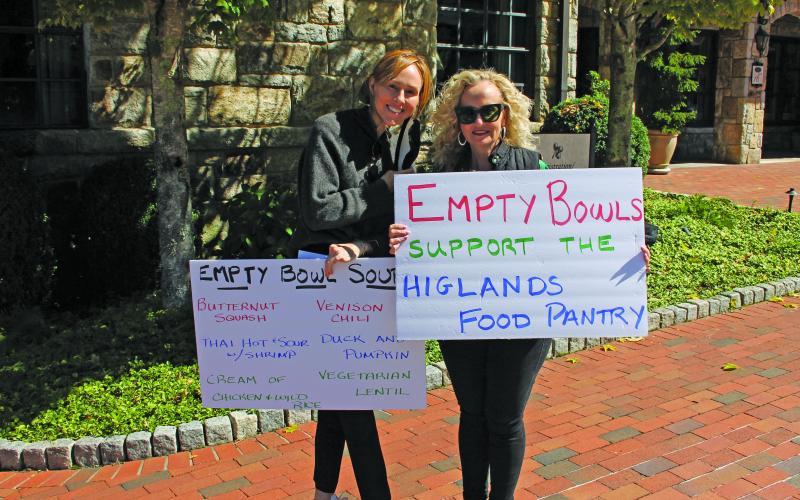 Empty Bowls
Support the
Higlands
Food Pantry
Empty Bowl Soup
Butternut
Squash
Thai Hot & Sour
w/ Shrimp
Cream of
Chicken & Wild
Rice
Venison
Chili
Duck and
Pumpkin
Vegetarian
Lentil